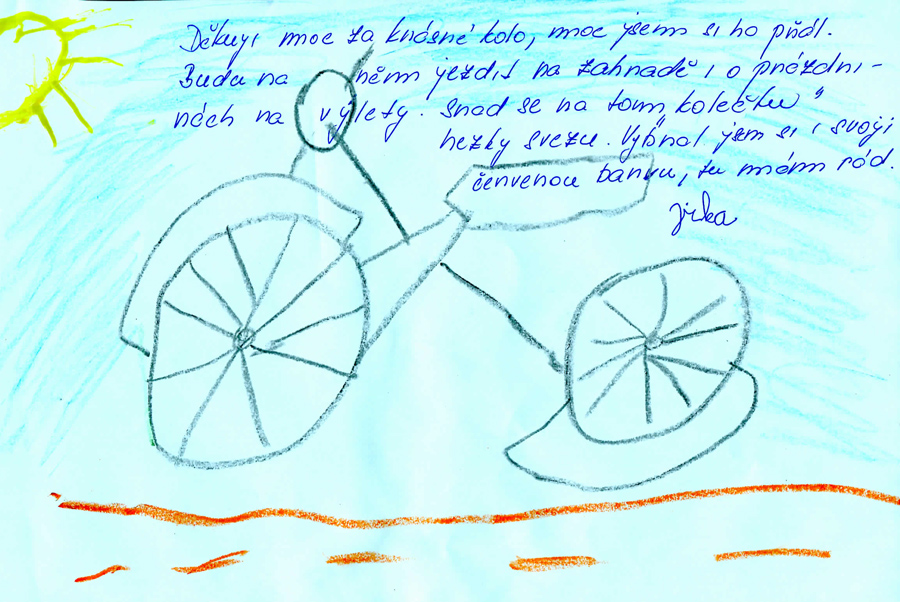 Děkuji moc za krásné kolo, moc jsem si ho přál.
Budu na něm jezdit na zahradě i o prázdni-
nách na výlety. Snad se na tom "kolečku"
hezky svezu. Vybral jsem si i svoji
červenou barvu, tu mám rád.
Jirka